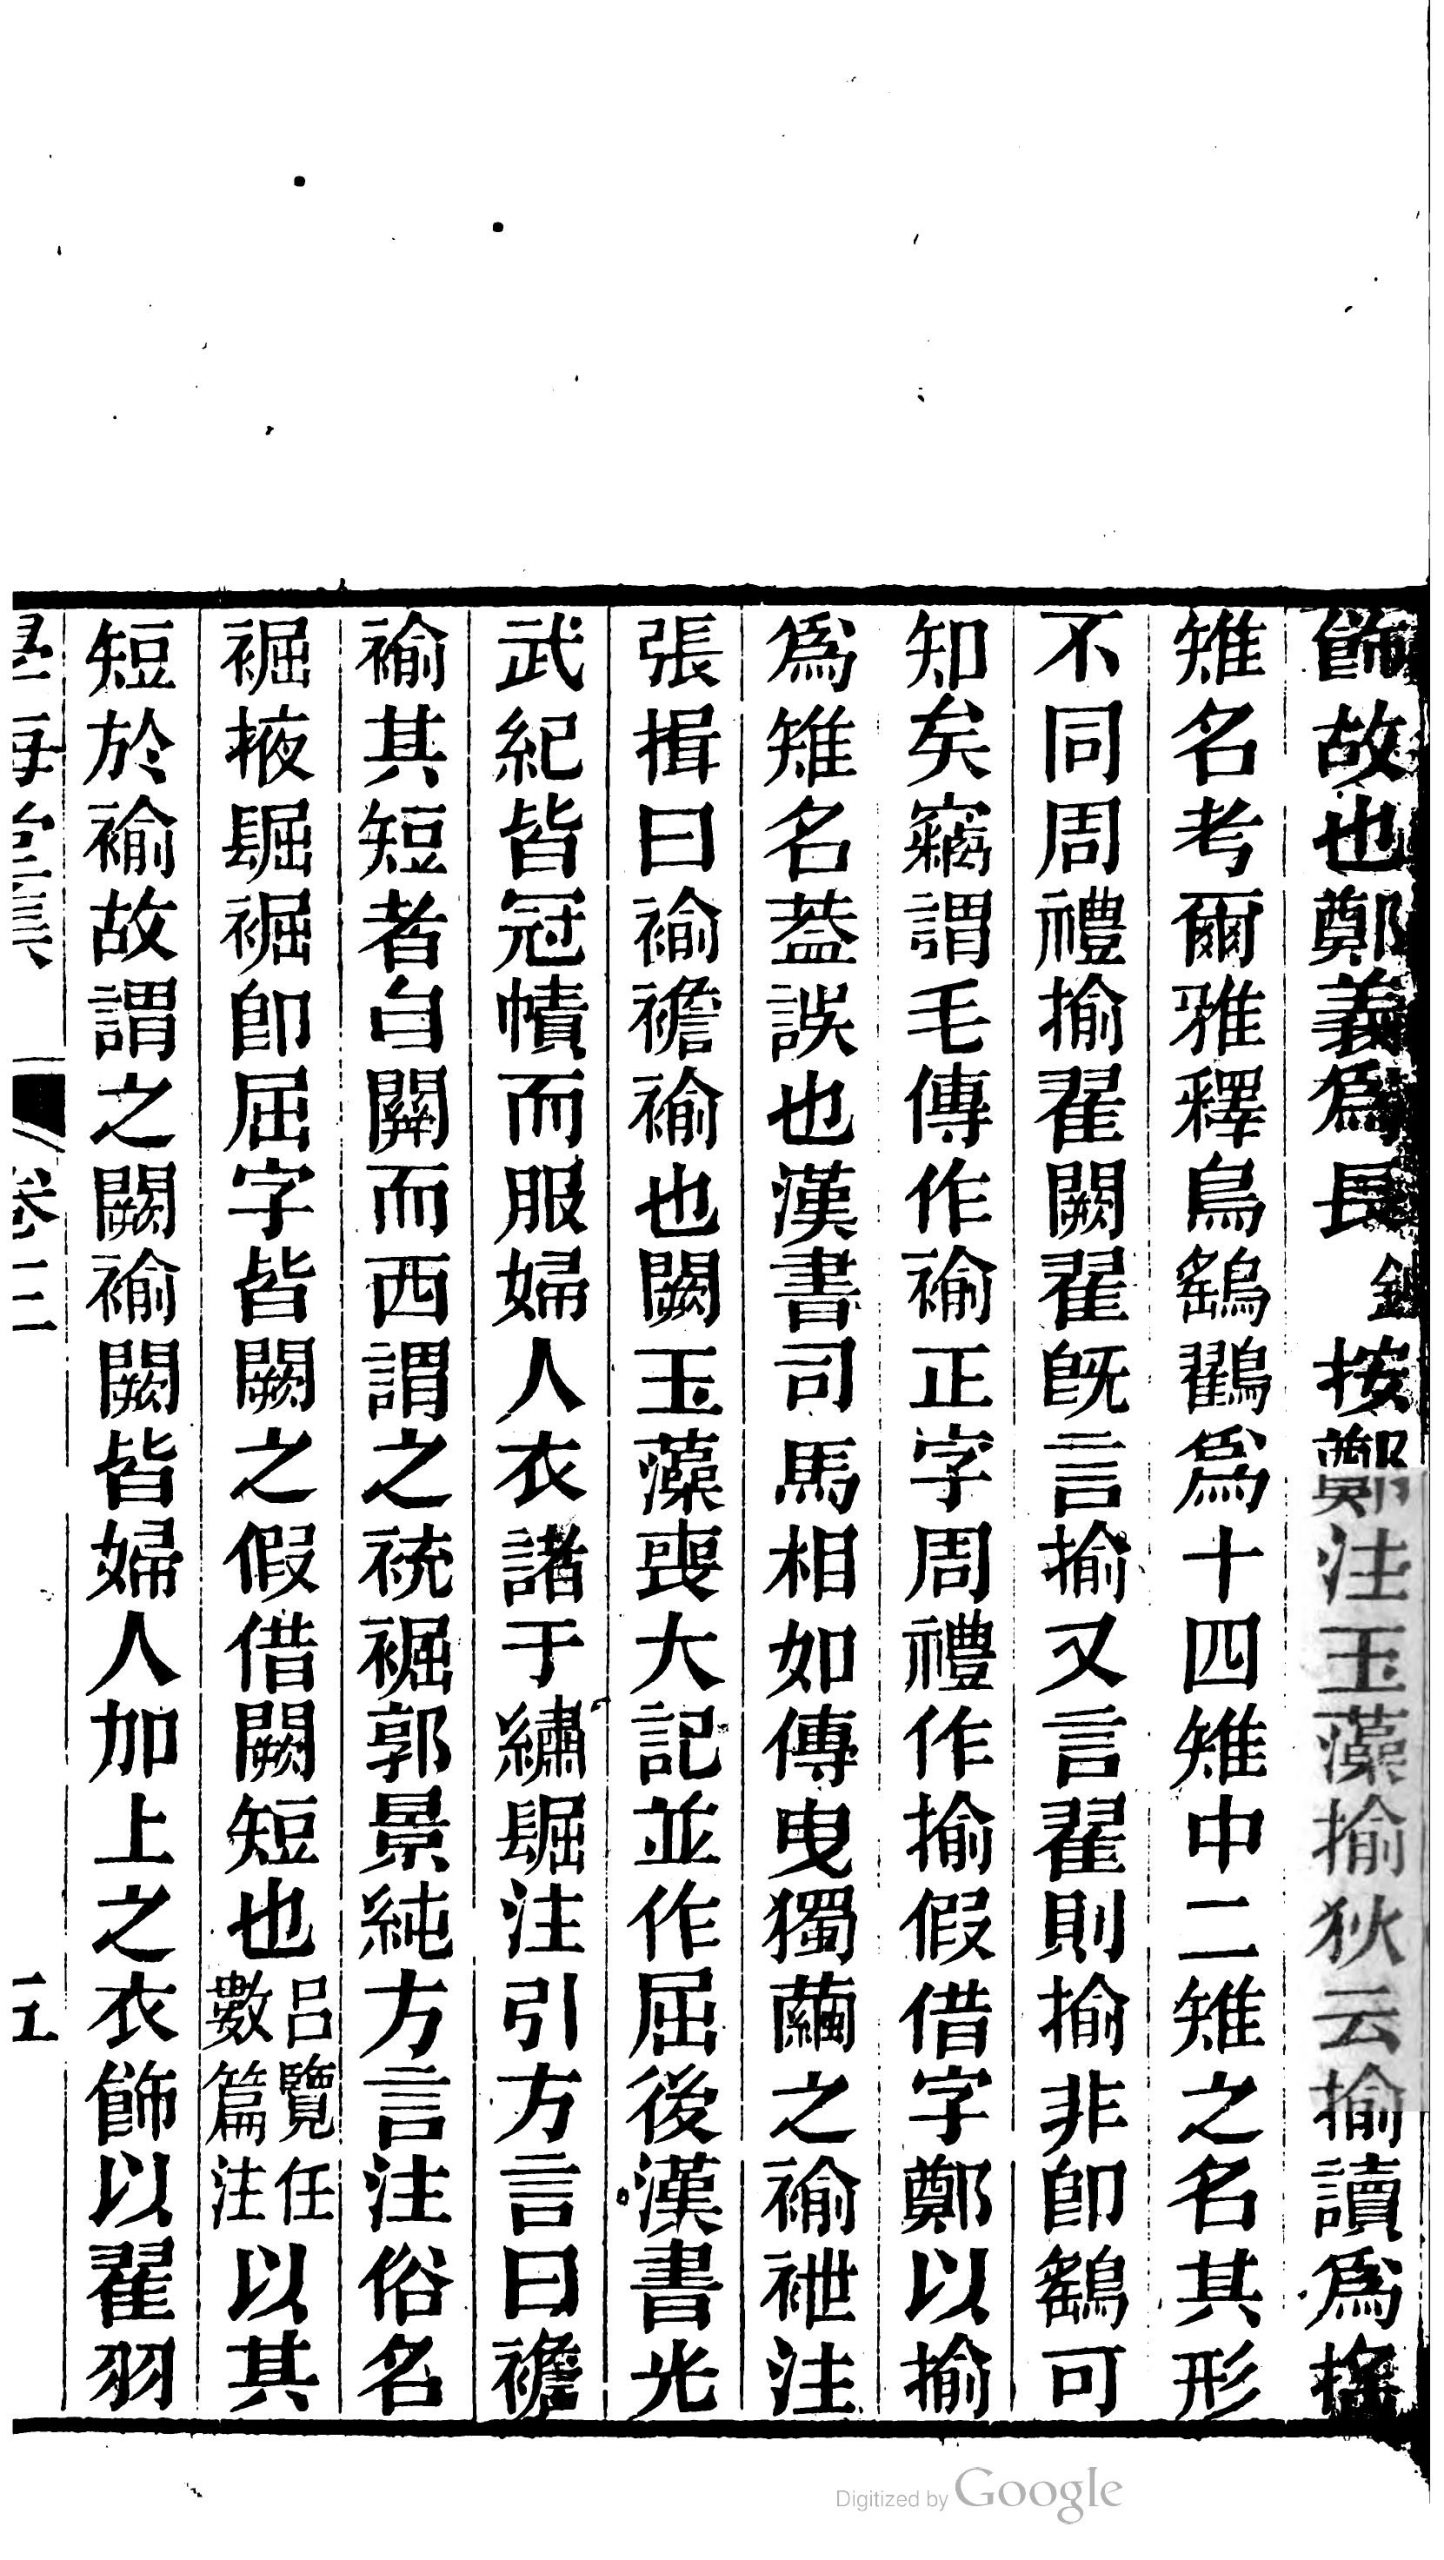 飾故也鄭義爲長按鄭注玉藻揄狄云揄讀爲搖
雉名考爾雅釋鳥鷂鸐爲十四雉中二雉之名其形
不同周禮揄翟闕翟旣言揄又言翟則揄非卽鷂可
知矣竊謂毛傳作褕正字周禮作揄假借字鄭以揄
爲雉名葢誤也漢書司馬相如傳曳獨繭之褕袣注
張揖曰褕襜褕也闕玉藻喪大記並作屈後漢書光
武紀皆冠幘而服婦人衣諸于繡镼注引方言曰襜
褕其短者自關而西謂之裗裾郭景純方言注俗名
裾掖镼裾卽屈字皆闕之假借闕短也呂覽任數篇注以其
短於褕故謂之闕褕闕皆婦人加上之衣飾以翟羽
學海堂集 卷三 五
Digitized by Google